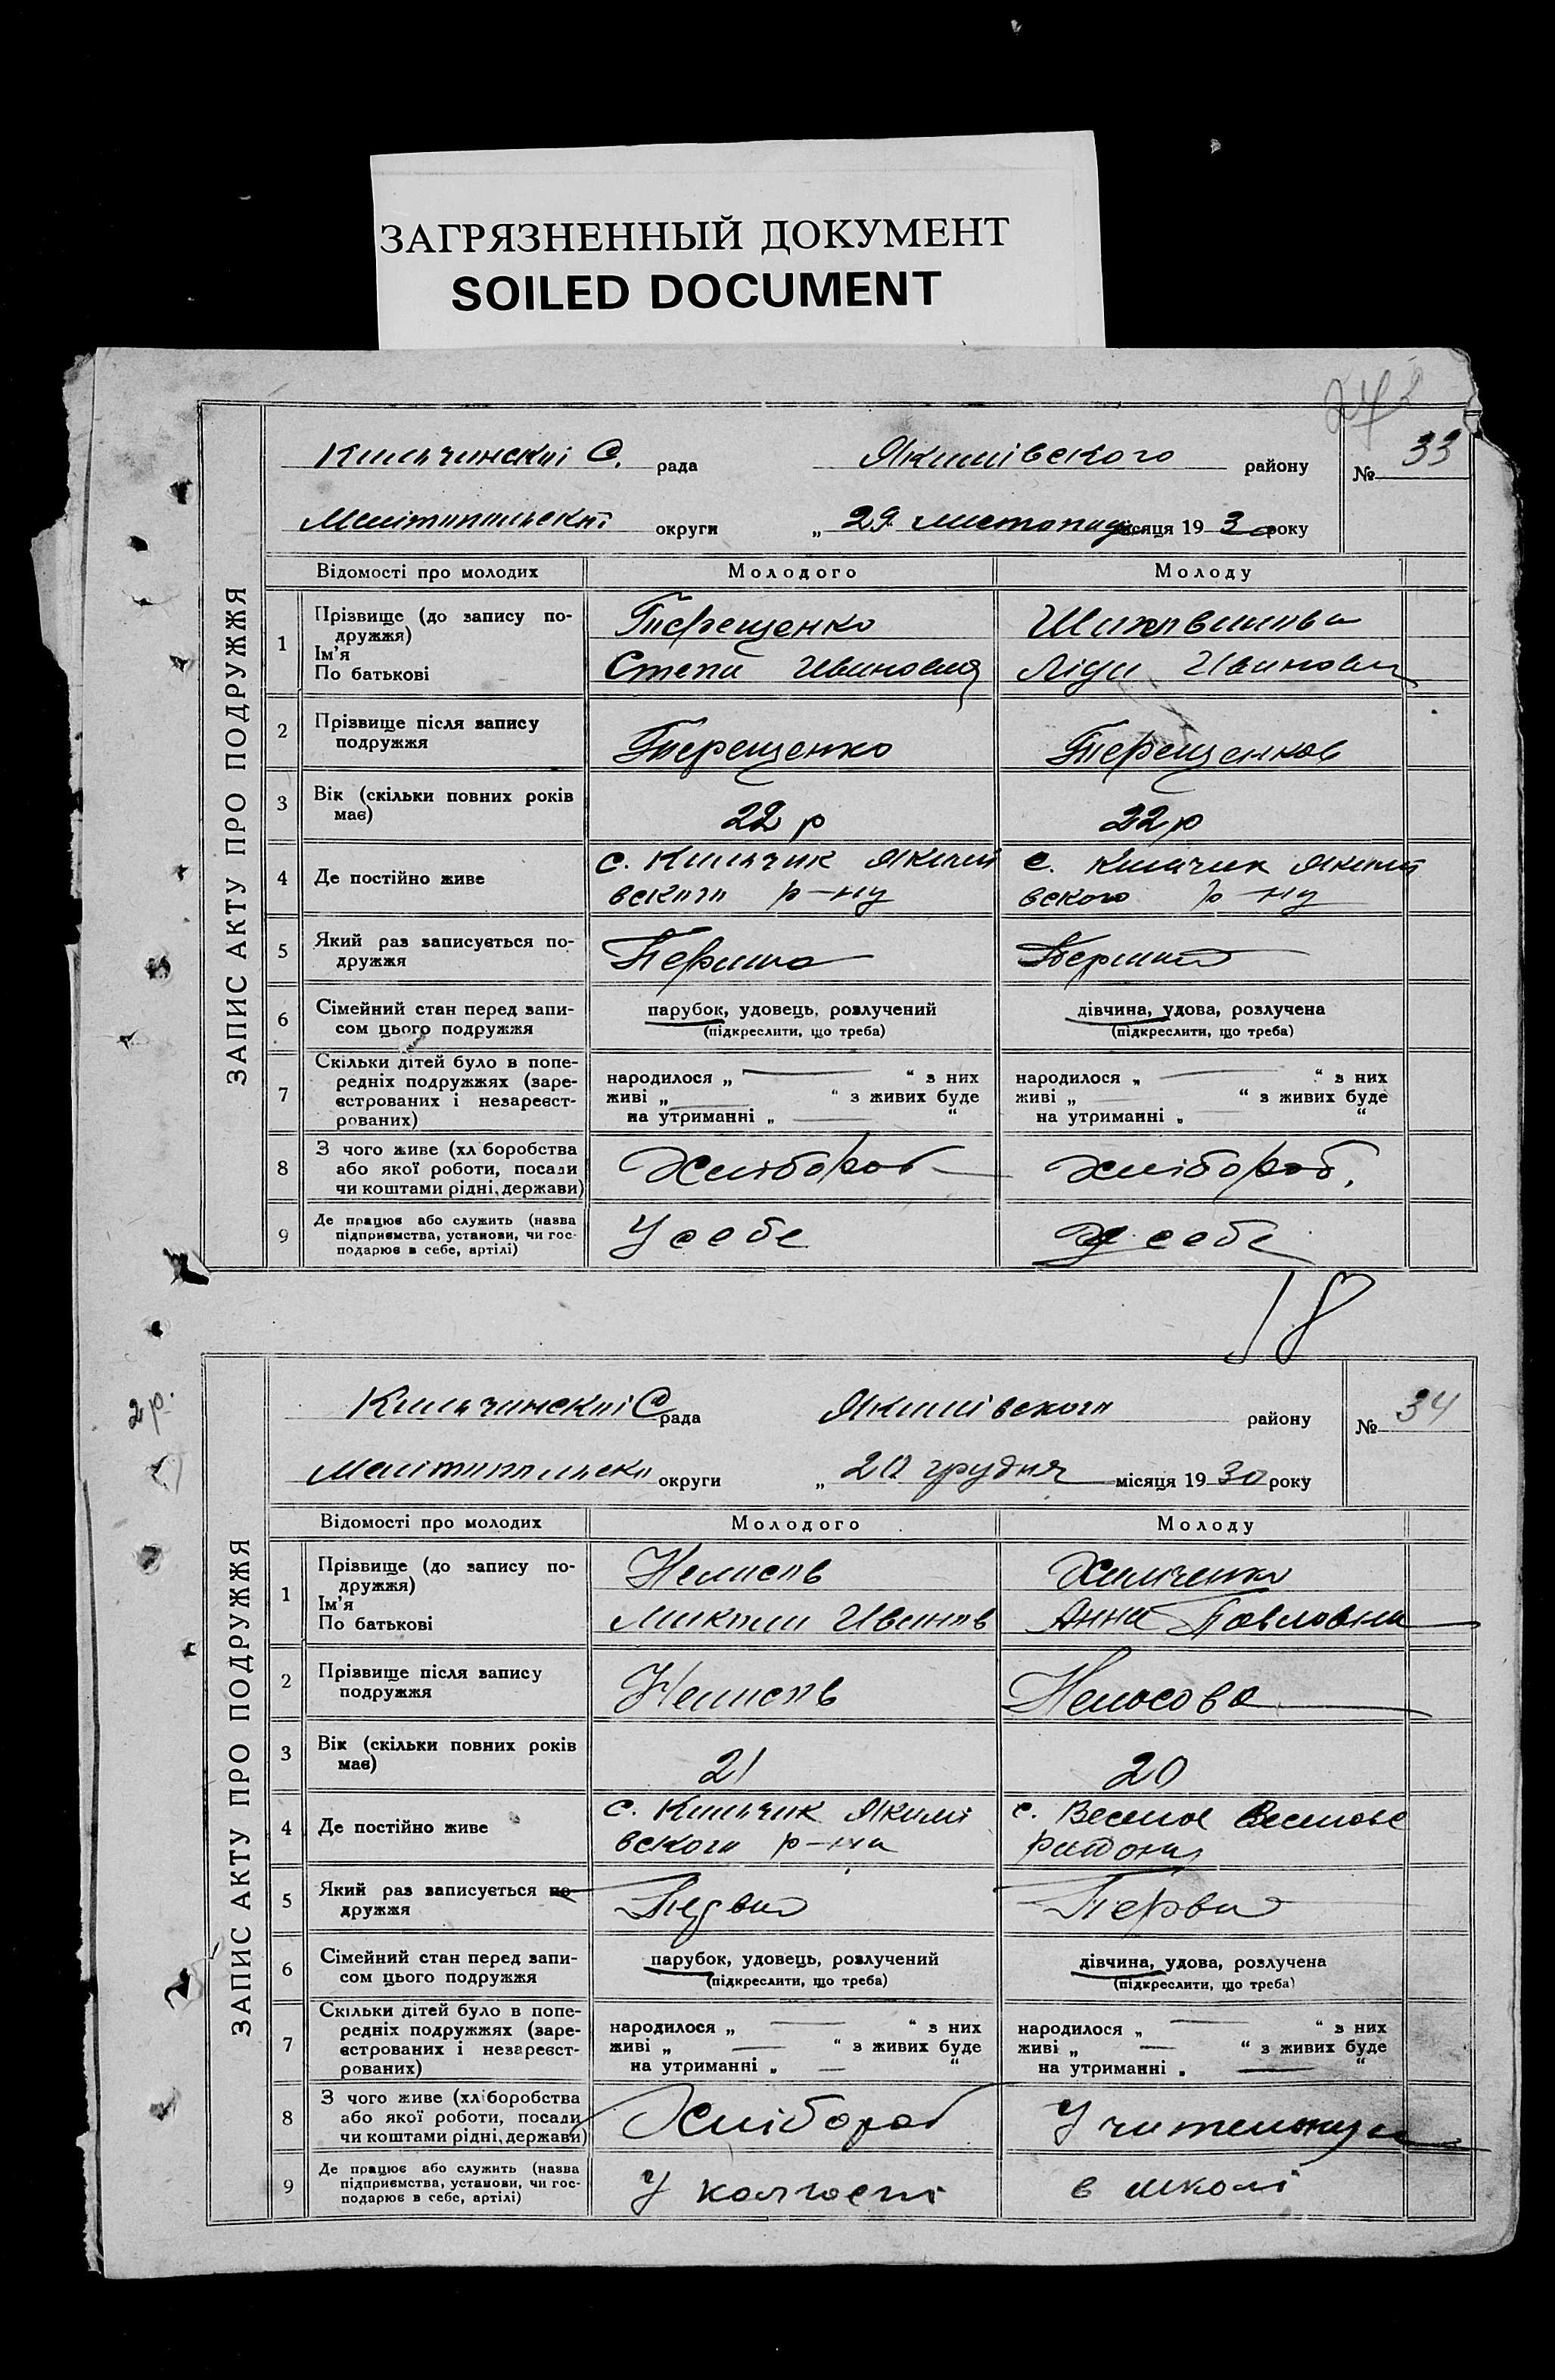 ЗАГРЯЗНЕННЫЙ ДОКУМЕНТ
SOILED DOCUMENT
ЗАПИС АКТУ ПРО ПОДРУЖЖЯ
С. рада Якимівского району № 33
округи „ 29 листопад місяця 1930 року
Відомості про молодих Молодого Молоду
1 Прізвище (до запису по-
дружжя) Терещенко
Ім'я
По батькові Степа Ивинович Ліда
2 Прізвище після запису
подружжя Терещенко Терещенков
3 Вік (скільки повних років
має) 22 р 22 р
4 Де постійно живе с. Кильчик Якимі с. Кильчик Якимі
вского р-ну вского р-ну
5 Який раз записується по-
дружжя Перша Перший
6 Сімейний стан перед запи- парубок, удовець, розлучений дівчина, удова, розлучена
сом цього подружжя (підкреслити, що треба) (підкреслити, що треба)
7 Скільки дітей було в попе-
редніх подружжях (заре- народилося „ “ з них народилося „ “ з них
єстрованих і незареєст- живі „ “ з живих буде живі „ “ з живих буде
рованих) на утриманні „ “ на утриманні „ “
8 З чого живе (хліборобства
або якої роботи, посади Хлібороб Хлібороб.
чи коштами рідні, держави)
9 Де працює або служить (назва
підприємства, установи, чи гос- У себе У себе
подарює в себе, артілі)
18
2 р.
ЗАПИС АКТУ ПРО ПОДРУЖЖЯ
С рада Якимівского району № 34
округи „ 20 грудня місяця 1930 року
Відомості про молодих Молодого Молоду
1 Прізвище (до запису по-
дружжя)
Ім'я
По батькові Микола Иванов Анна Павловна
2 Прізвище після запису
подружжя
3 Вік (скільки повних років
має) 21 20
4 Де постійно живе с. Кильчик Якимі с. Веселое Веселове
вского р-на района
5 Який раз записується по-
дружжя Первий Перва
6 Сімейний стан перед запи- парубок, удовець, розлучений дівчина, удова, розлучена
сом цього подружжя (підкреслити, що треба) (підкреслити, що треба)
7 Скільки дітей було в попе-
редніх подружжях (заре- народилося „ “ з них народилося „ “ з них
єстрованих і незареєст- живі „ “ з живих буде живі „ “ з живих буде
рованих) на утриманні „ “ на утриманні „ “
8 З чого живе (хліборобства
або якої роботи, посади Хлібороб
чи коштами рідні, держави)
9 Де працює або служить (назва
підприємства, установи, чи гос- У колгоспі в школі
подарює в себе, артілі)